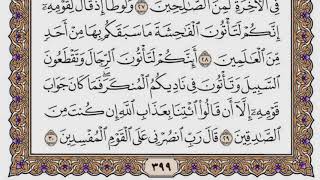 فِي ٱلْأٓخِرَةِ لَمِنَ ٱلصَّٰلِحِينَ ٢٧ وَلُوطًا إِذْ قَالَ لِقَوْمِهِۦٓ
إِنَّكُمْ لَتَأْتُونَ ٱلْفَٰحِشَةَ مَا سَبَقَكُم بِهَا مِنْ أَحَدٍ
مِّنَ ٱلْعَٰلَمِينَ ٢٨ أَئِنَّكُمْ لَتَأْتُونَ ٱلرِّجَالَ وَتَقْطَعُونَ
ٱلسَّبِيلَ وَتَأْتُونَ فِي نَادِيكُمُ ٱلْمُنكَرَ فَمَا كَانَ جَوَابَ
قَوْمِهِۦٓ إِلَّآ أَن قَالُوا۟ ٱئْتِنَا بِعَذَابِ ٱللَّهِ إِن كُنتَ مِنَ
ٱلصَّٰدِقِينَ ٢٩ قَالَ رَبِّ ٱنصُرْنِي عَلَى ٱلْقَوْمِ ٱلْمُفْسِدِينَ ٣٠
٣٩٩